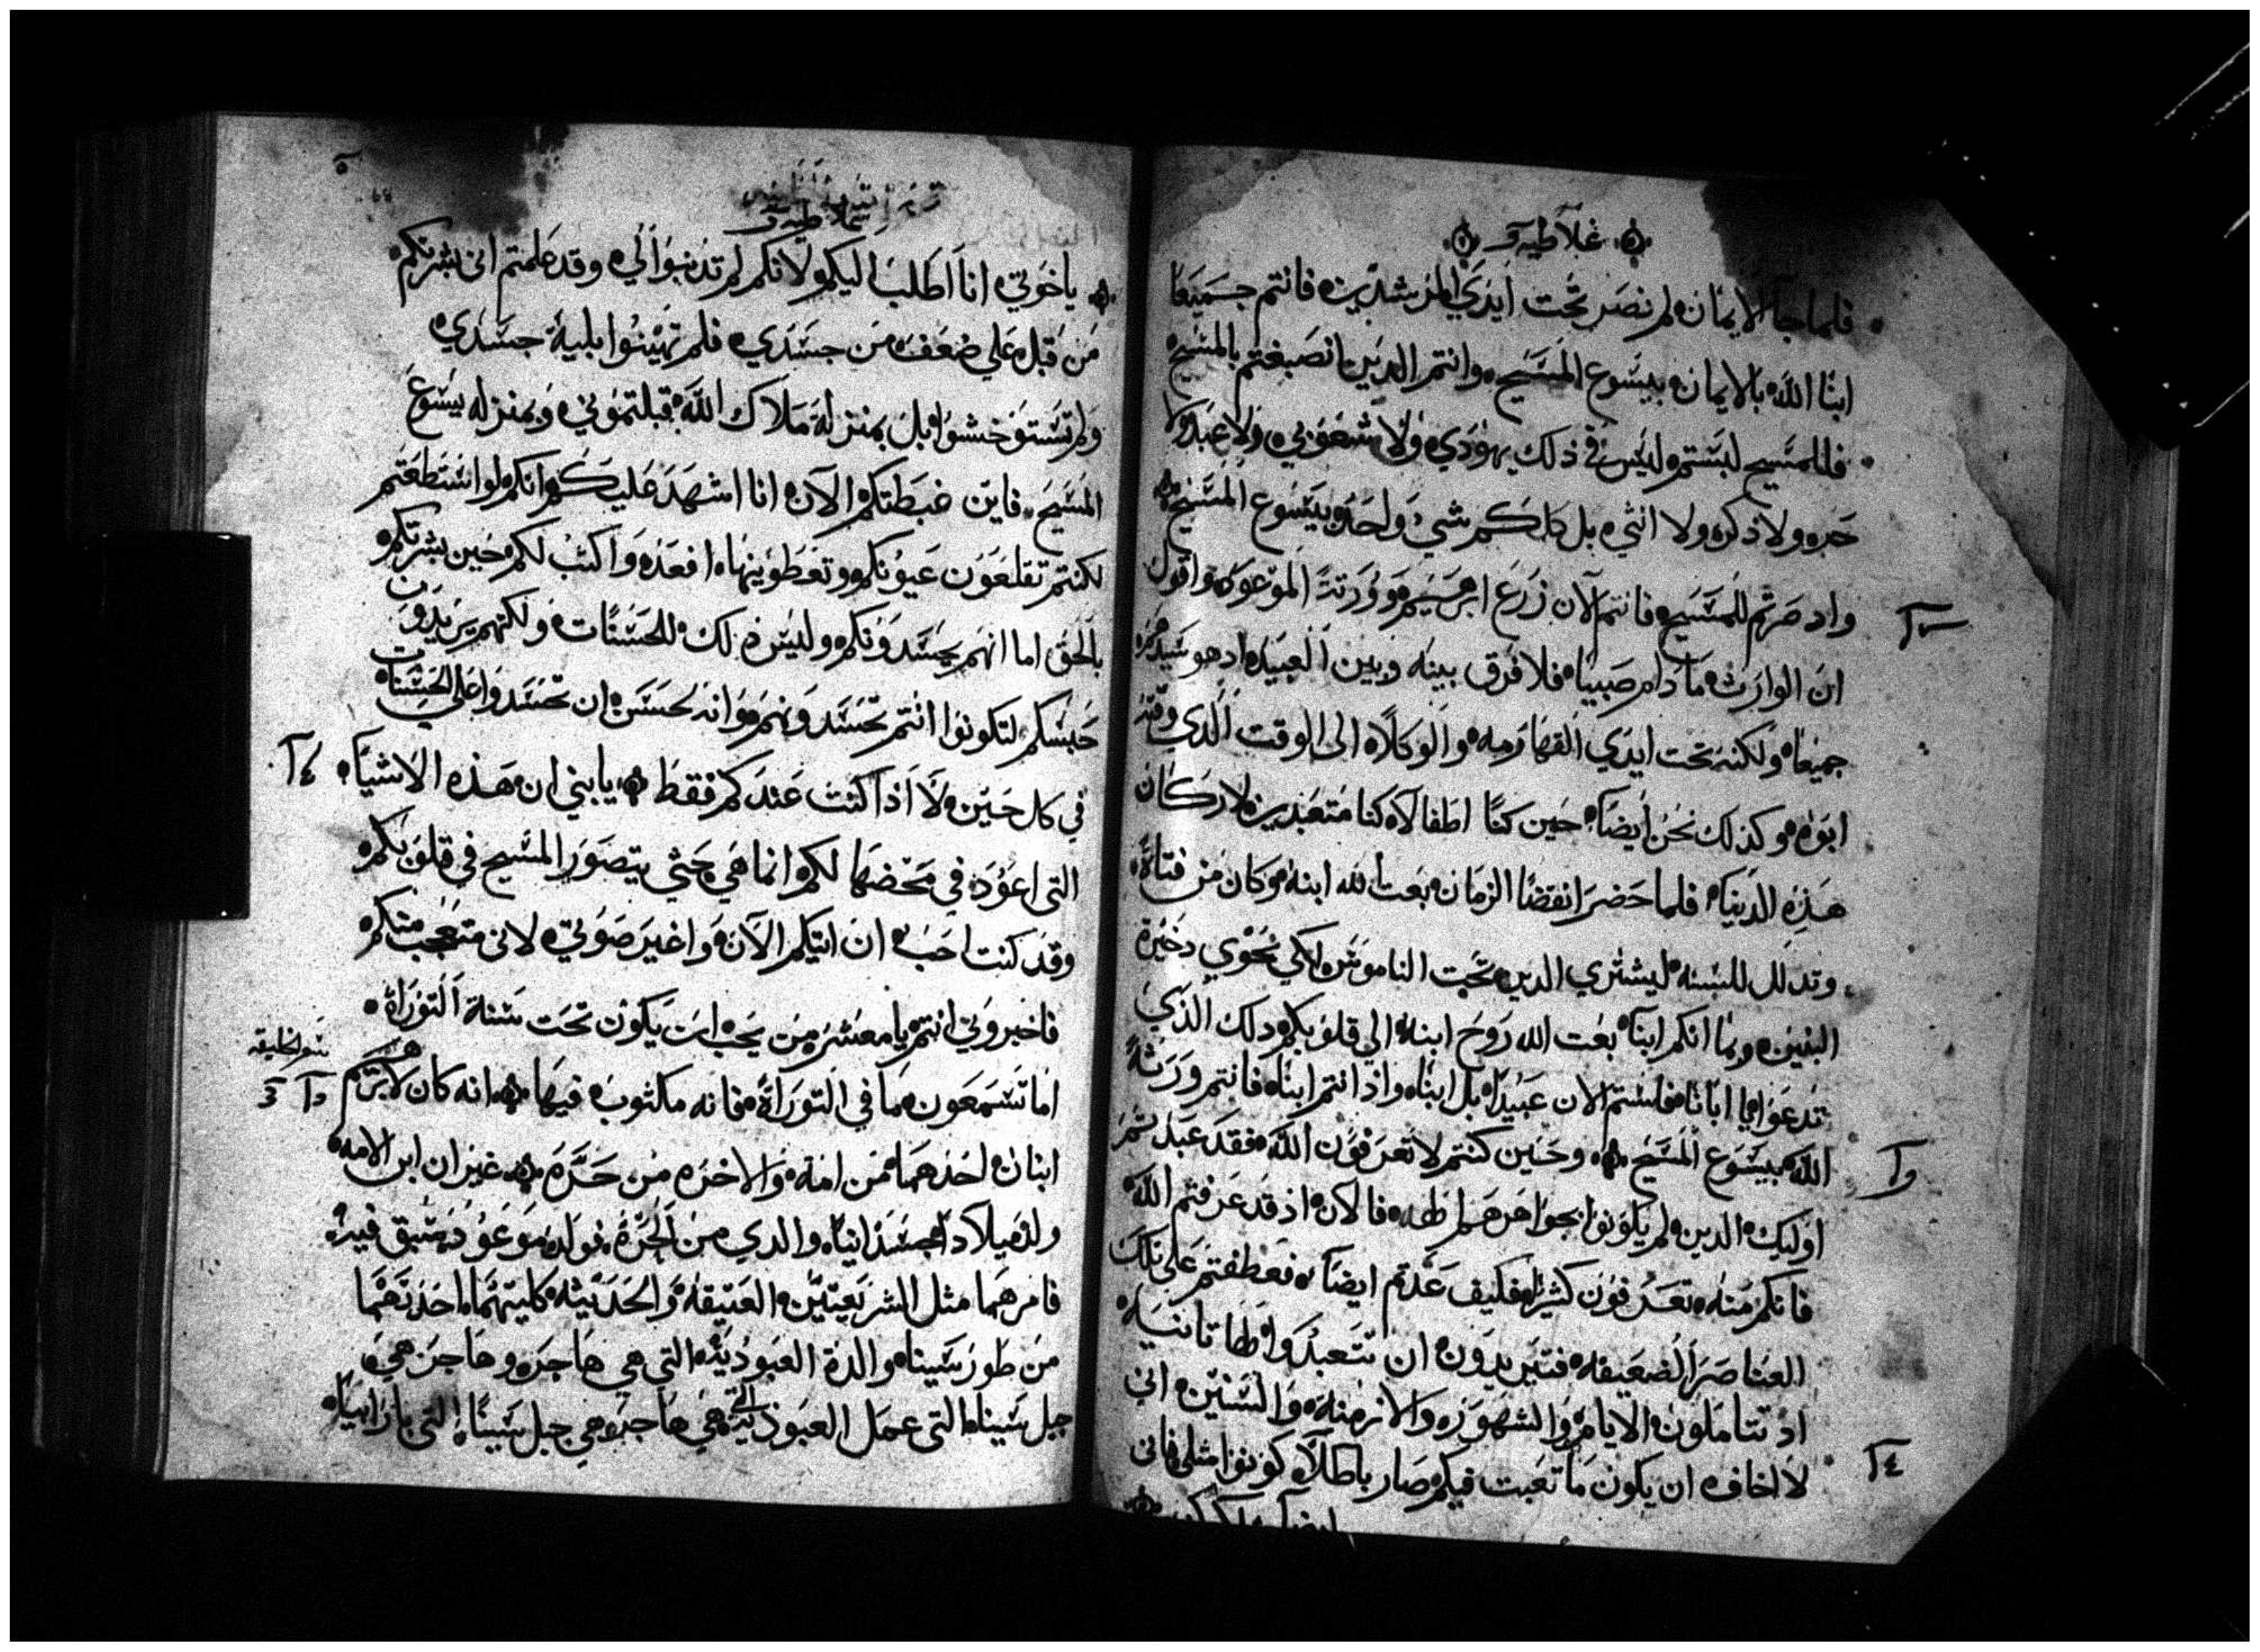 غلاطيه
فلما جآ الايمان لم نصر تحت ايدي المرشدين فانتم جميعا
ابنا الله بالايمان بيسوع المسيح وانتم الدين انصبغتم بالمسيح
فللمسيح لبستم ليس في ذلك يهودي ولا شعوبي ولا عبد ولا
حر ولا ذكر ولا انثي بل كلكم شي واحد بيسوع المسيح
واد صرتم للمسيح فانتم الآن زرع ابرهيم وورثة الموعود واقول
ان الوارث ما دام صبيا فلا فرق بينه وبين العبيد اد هو سيدهم
جميعا ولكنه تحت ايدي القهارمه والوكلاء الى الوقت الدي وقته
ابوه وكذلك نحن ايضا حين كنا اطفالا كنا متعبدين لاركان
هذه الدنيا فلما حضر انقضا الزمان بعت الله ابنه وكان من فتاة
وتدلل للسنه ليشتري الدين تحت الناموس لكي نحوي دخيرة
البنين وبما انكم ابنآ بعت الله روح ابنه الي قلوبكم دلك الذي
تدعوا ابا ابانا فلستم الان عبيدا بل ابنا واذ انتم ابنا فانتم ورثة
الله بيسوع المسيح وحين كنتم لا تعرفون الله فقد عبدتم
اوليك الدين لم يكونوا بجواهرهم الهه فالان اذ قد عرفتم الله
فانكم منه تعرفون كثيرا فكيف عدتم ايضا فعطفتم على تلك
العناصر الضعيفه فتريدون ان تتعبدوا لها تانيه
اد تتاملون الايام والشهور والازمنه والسنين اني
لاخاف ان يكون ما تعبت فيكم صار باطلا كونوا مثلي فاني
غلاطيه
ياخوتي انا اطلب اليكم لانكم لم تدنبوا الي وقد علمتم اني بشرتكم
من قبل علي ضعف من جسدي فلم تهينوا بلية جسدي
ولم تستوخشوا بل بمنزلة ملاك الله قبلتموني وبمنزله يسوع
المسيح فاين غبطتكم الآن انا اشهد عليكم انكم لو استطعتم
لكنتم تقلعون عيونكم وتعطوينها افعدو اكنت لكم حين بشرتكم
بالحق اما انهم يحسدونكم وليس ذلك للحسنات ولكنهم يريدون
حبسكم لتكونوا انتم تحسدونهم وانه لحسن ان تحسدوا علي الحسنات
في كل حين لا اذا كنت عندكم فقط يا بني ان هذه الاشيا
التى اعود في مخضها لكم انما هي حتي يتصور المسيح في قلوبكم
وقد كنت احب ان اتيكم الآن واغير صوتي لاني متعجب منكم
فاخبروني انتم يا معشر من يحب ان يكون تحت سنة التوراة
اما تسمعون ما في التوراة فانه مكتوب فيها انه كان لابرهيم
سفر الخليقه
ابنان احدهما من امة والاخر من حرة غير ان ابن الامه
ولد ميلادا جسدانيا والدي من الحرة فولد موعود سبق فيه
فامرهما مثل الشريعتين العتيقه والحديثه كليتهما احداهما
من طور سينا والدة العبوديه التى هي هاجر وهاجر هي
جبل سينا التى عمل العبوديه هي هاجر هي جبل سينا التى بارابيا